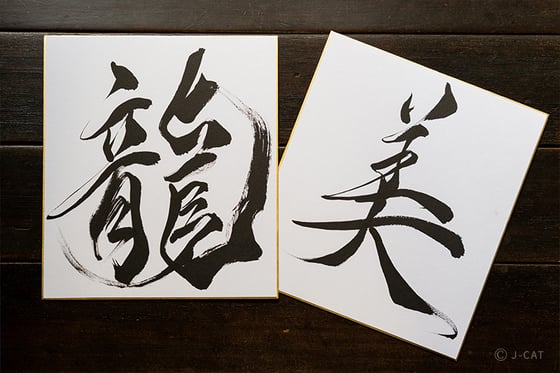 龍
美
© J-CAT